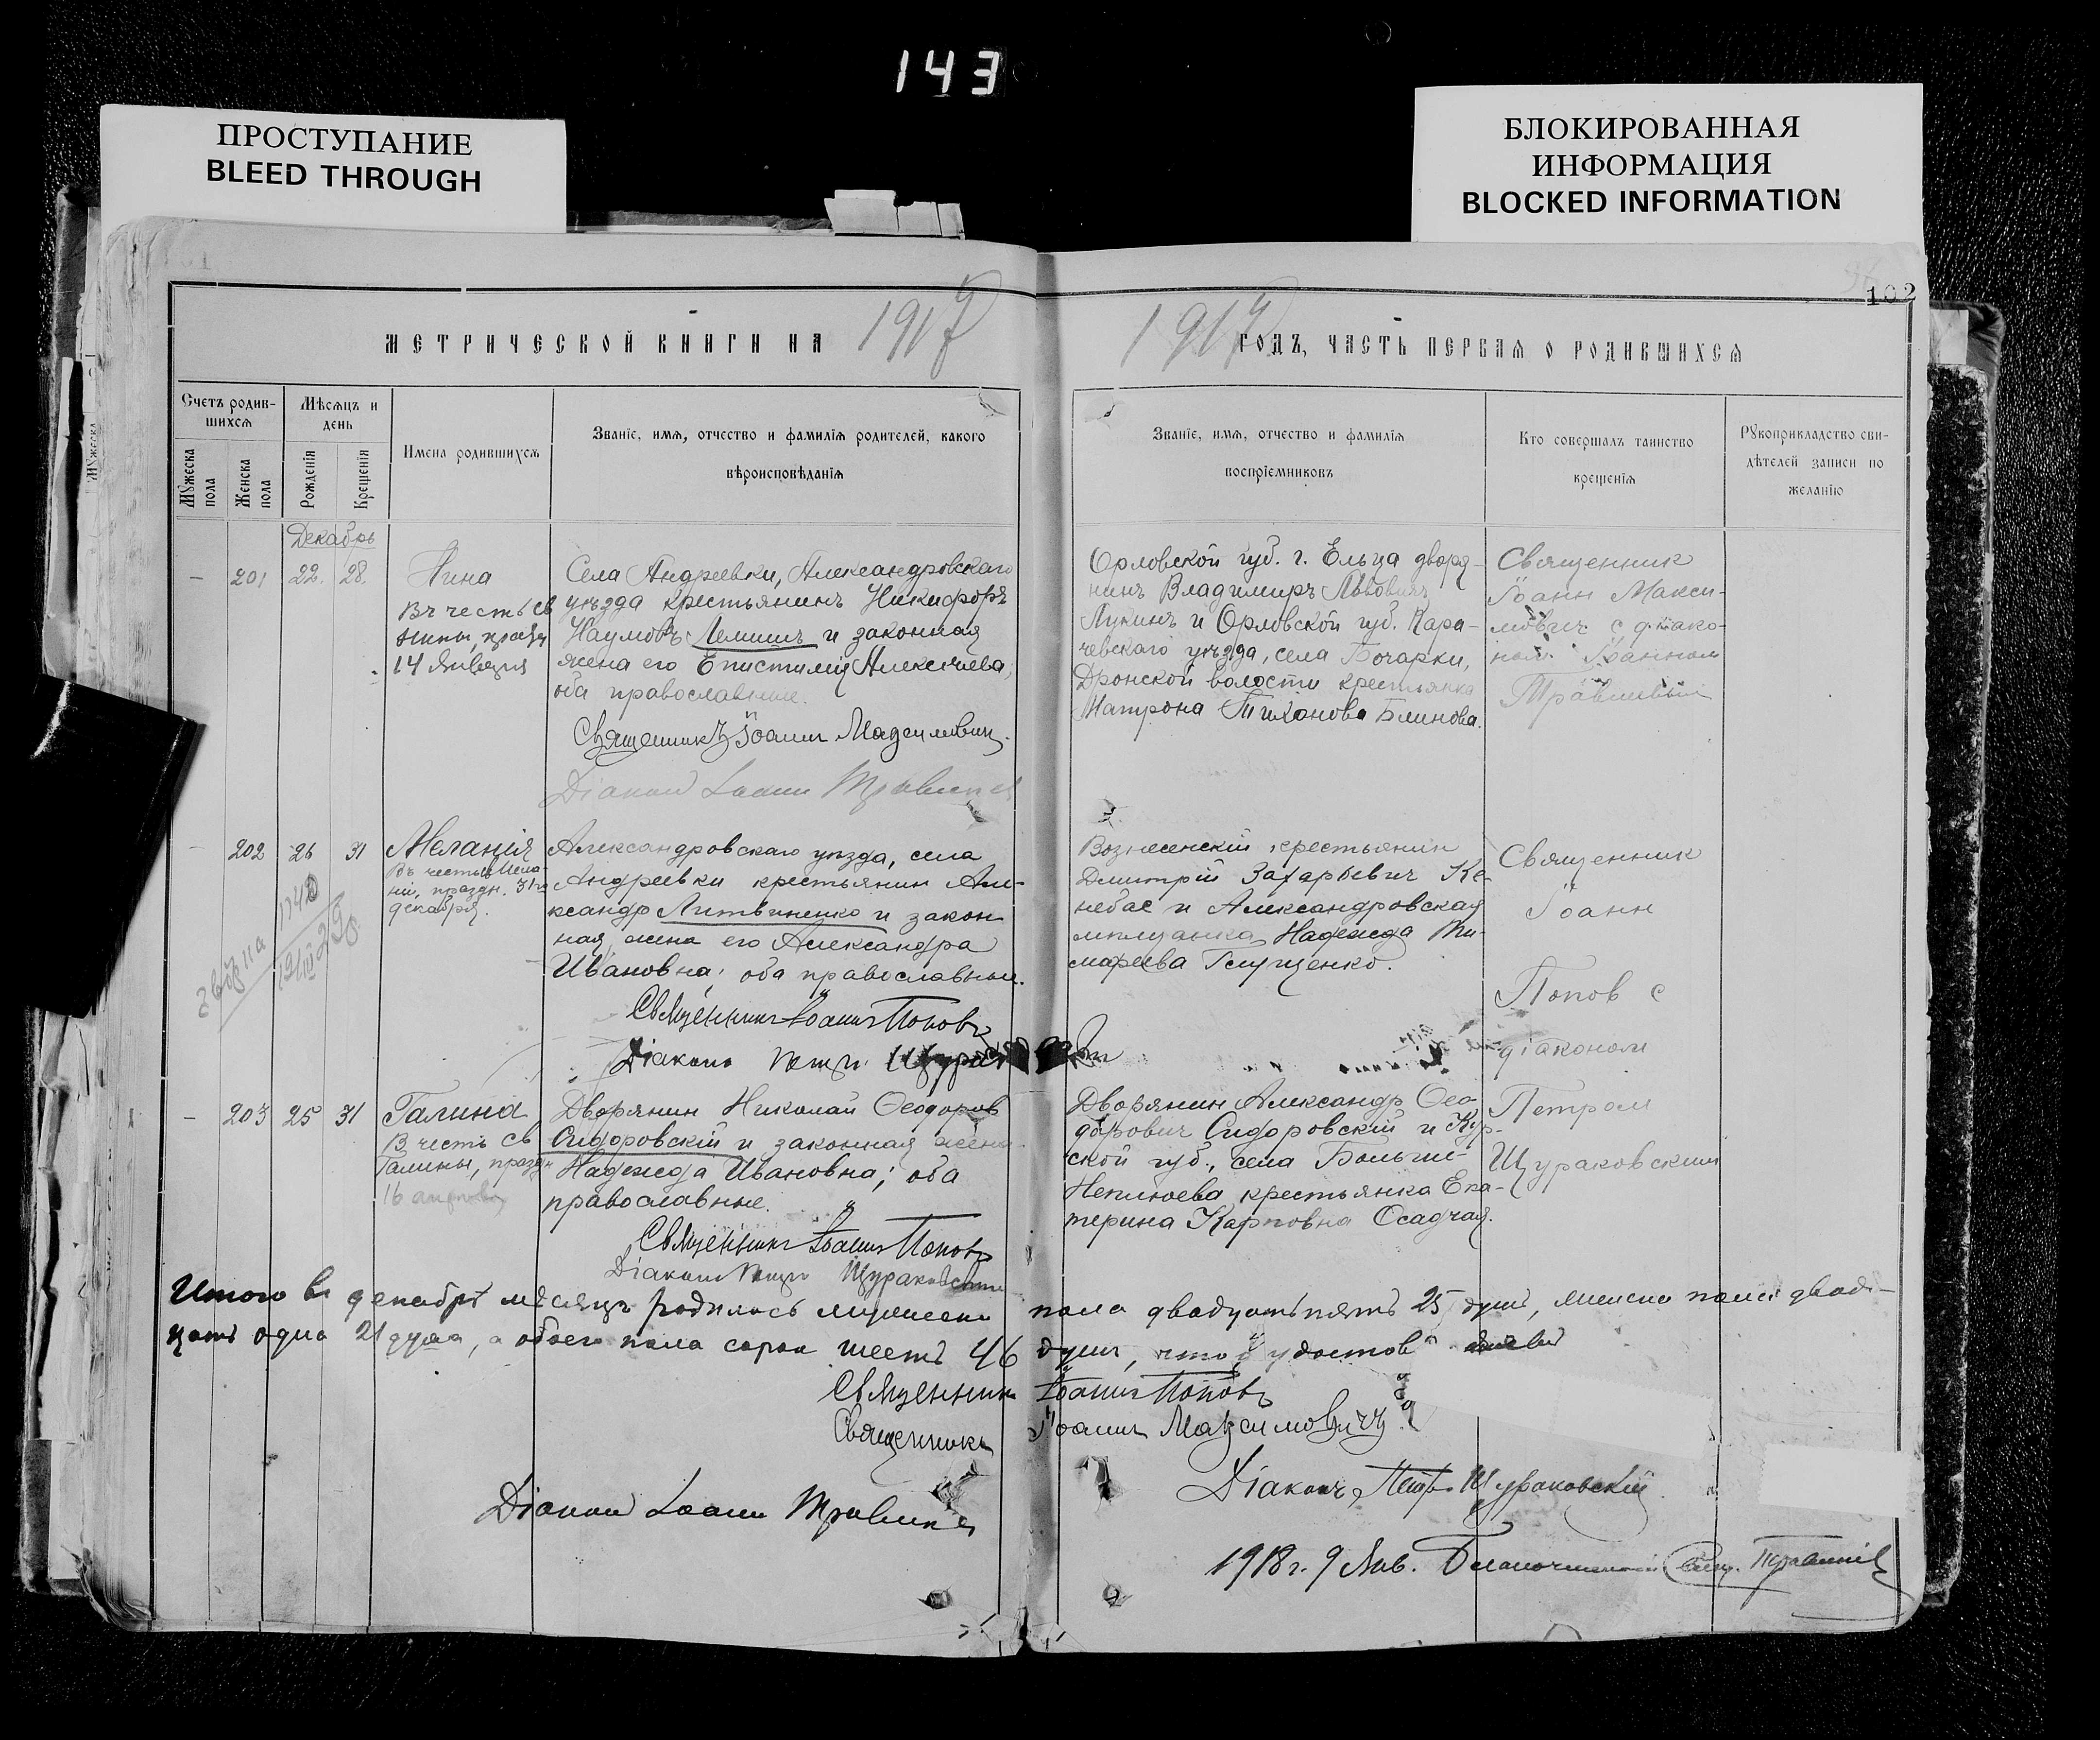 143
ПРОСТУПАНИЕ
BLEED THROUGH
БЛОКИРОВАННАЯ
ИНФОРМАЦИЯ
BLOCKED INFORMATION
102
МЕТРИЧЕСКОЙ КНИГИ НА 1917
1917 ГОДЪ, ЧАСТЬ ПЕРВАЯ О РОДИВШИХСЯ
Счетъ родив-
шихся
Мужеска пола
Женска пола
Мѣсяцъ и
день
Рожденія
Крещенія
Имена родившихся
Званіе, имя, отчество и фамилія родителей, какого
вѣроисповѣданія
Званіе, имя, отчество и фамилія
воспріемниковъ
Кто совершалъ таинство
крещенія
Рукоприкладство сви-
дѣтелей записи по
желанію
Декабрь
201 22. 28.
Нина
Въ честь св
Нины, праздн
14 Января
Села Андреевки, Александровскаго
уѣзда крестьянинъ Никифоръ
Наумовъ Лемишъ и законная
жена его Епистимія Алексѣева,
оба православные.
Священникъ Іоаннъ Максимовичъ.
Діакон Іоанн
Орловской губ. г. Ельца дворя-
нинъ Владимиръ Львовичъ
Лукинъ и Орловской губ. Кара-
чевскаго уѣзда, села Бочарки,
Дронской волости крестьянка
Матрона Тихонова Блинова.
Священник
Іоанн Макси-
мович с діако-
ном Іоанном
202 26 31
Меланія
Въ честь Мела-
ніи, праздн. 31го
декабря.
Александровскаго уѣзда, села
Андреевки крестьянин Але-
ксандр Литвиненко и закон
ная жена его Александра
Ивановна; оба православные.
Священникъ Іоаннъ Поповъ
Діаконъ Петръ
Вознесенскій крестьянин
Дмитрій Захарьевич Ке-
небас и Александровская
мѣщанка Надежда Ти-
мофеева Глущенко.
Священник
Іоанн
Попов с
діаконом
203 25 31
Галина
В честь св
Галины, праздн
16 апрѣля
Дворянин Николай Ѳеодоров
Сидоровскій и законная жена
Надежда Ивановна; оба
православные.
Священникъ Іоаннъ Поповъ
Діаконъ Петръ Щураковскій
Дворянин Александр Ѳео-
дорович Сидоровскій и Кур-
ской губ., села Больше-
Неплюева крестьянка Ека-
терина Карповна Осадчая.
Петром
Щураковским
Итого въ декабрѣ мѣсяцѣ родилось мужеска пола двадцать пять 25 душъ, женска пола двад-
цать одна 21 душа, а обоего пола сорок шесть 46 душъ, что и удостов
Священникъ Іоаннъ Поповъ
Священникъ Іоаннъ Максимовичъ
Діаконъ Петръ Щураковскій
Діакон Іоанн
1918 г. 9 Янв. Благочинный Свящ.